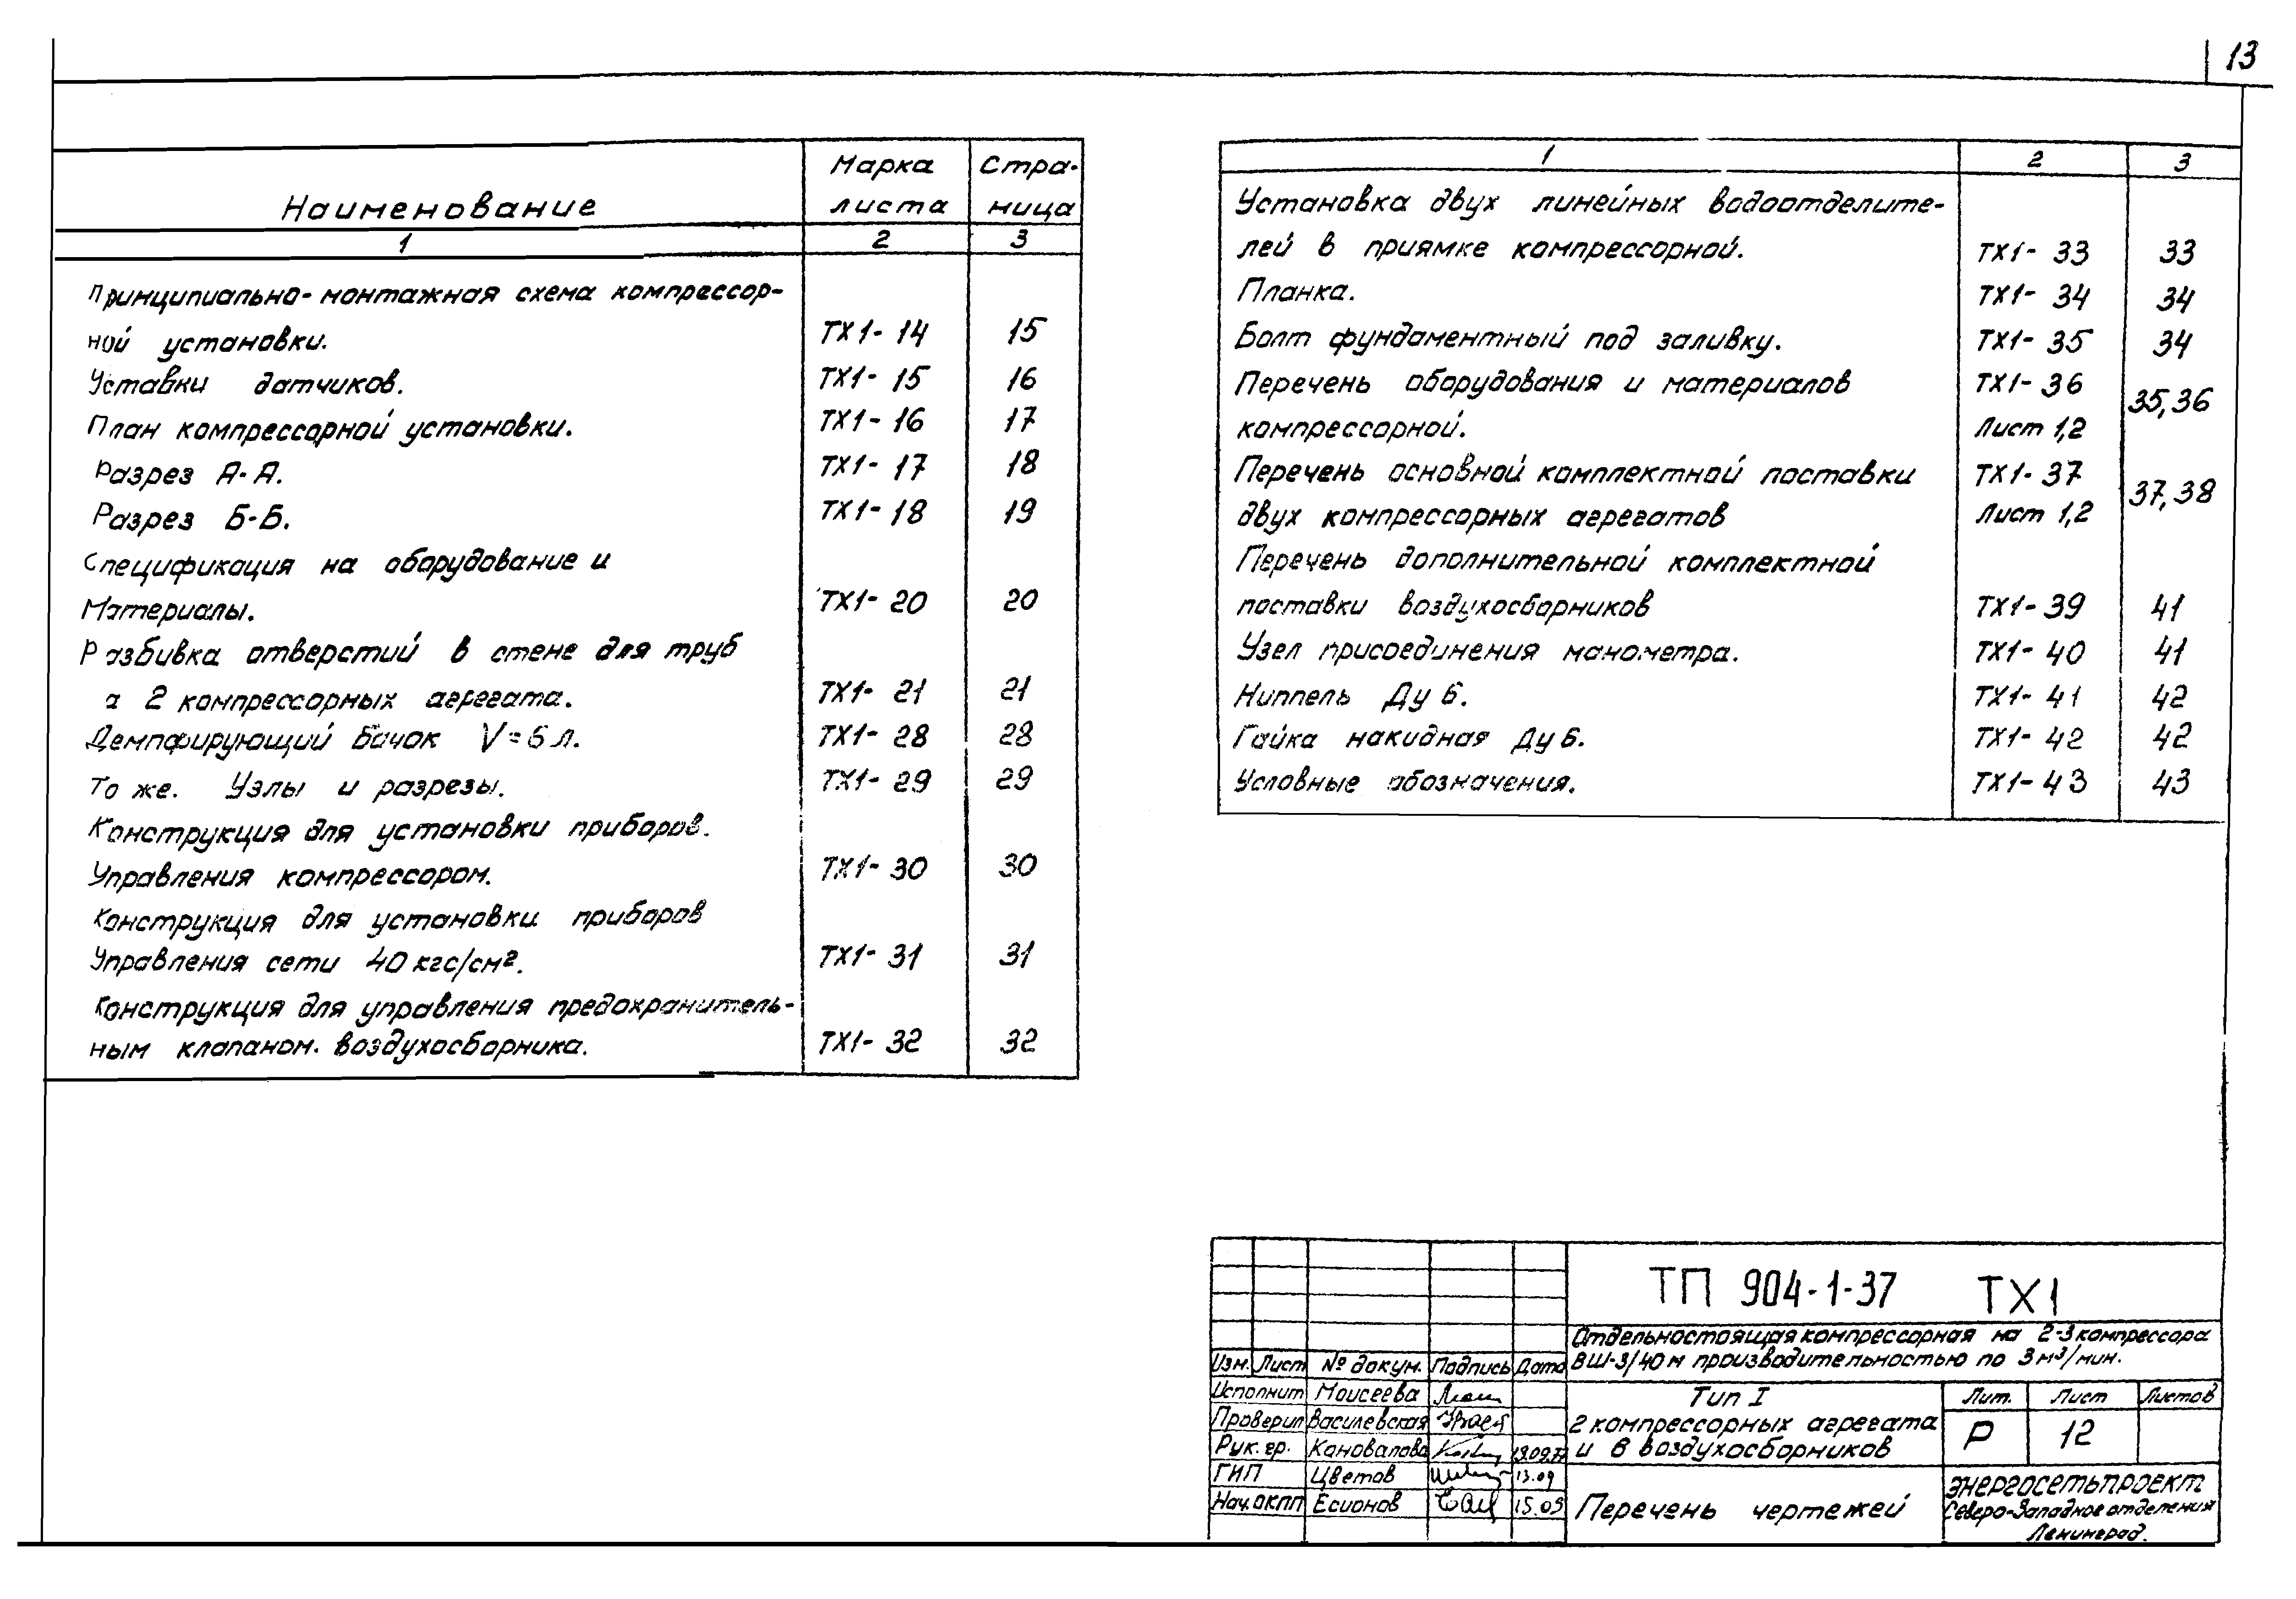 13
Наименование Марка листа Стра-ница
1 2 3
Принципиально-монтажная схема компрессор-
ной установки. ТХ1-14 15
Уставки датчиков. ТХ1-15 16
План компрессорной установки. ТХ1-16 17
Разрез А-А. ТХ1-17 18
Разрез Б-Б. ТХ1-18 19
Спецификация на оборудование и
Материалы. ТХ1-20 20
Разбивка отверстий в стене для труб
2 компрессорных агрегата. ТХ1-21 21
Демпфирующий бачок V=6л. ТХ1-28 28
То же. Узлы и разрезы. ТХ1-29 29
Конструкция для установки приборов.
Управления компрессором. ТХ1-30 30
Конструкция для установки приборов
Управления сети 40 кгс/см². ТХ1-31 31
Конструкция для управления предохранитель-
ным клапаном. воздухосборника. ТХ1-32 32
1 2 3
Установка двух линейных водоотделите-
лей в приямке компрессорной. ТХ1-33 33
Планка. ТХ1-34 34
Болт фундаментный под заливку. ТХ1-35 34
Перечень оборудования и материалов ТХ1-36 35,36
компрессорной. Лист 1,2
Перечень основной комплектной поставки ТХ1-37 37,38
двух компрессорных агрегатов Лист 1,2
Перечень дополнительной комплектной
поставки воздухосборников ТХ1-39 41
Узел присоединения манометра. ТХ1-40 41
Ниппель Ду 6. ТХ1-41 42
Гайка накидная Ду 6. ТХ1-42 42
Условные обозначения. ТХ1-43 43
ТП 904-1-37 ТХ1
Отдельностоящая компрессорная на 2-3 компрессора
ВШ-3/40м производительностью по 3м³/мин.
Изм. Лист № докум. Подпись Дата
Исполнит Моисеева
Проверил Василевская
Рук. гр. Коновалова
ГИП Цветов 13.09
Нач. ОКПП Есионов 15.09
Тип I
2 компрессорных агрегата
и 6 воздухосборников
Лит. Лист Листов
Р 12
Перечень чертежей
Энергосетьпроект
Северо-Западное отделения
Ленинград.